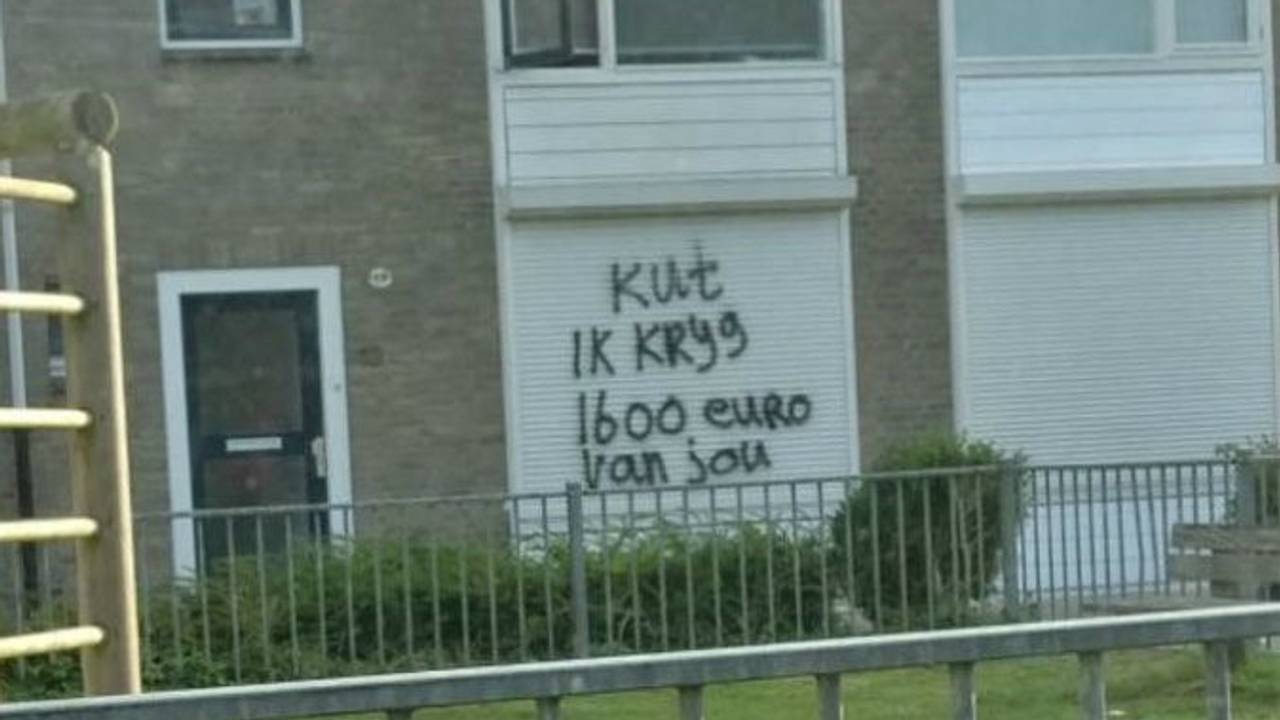 KUt
IK KRyg
1600 euro
van jou